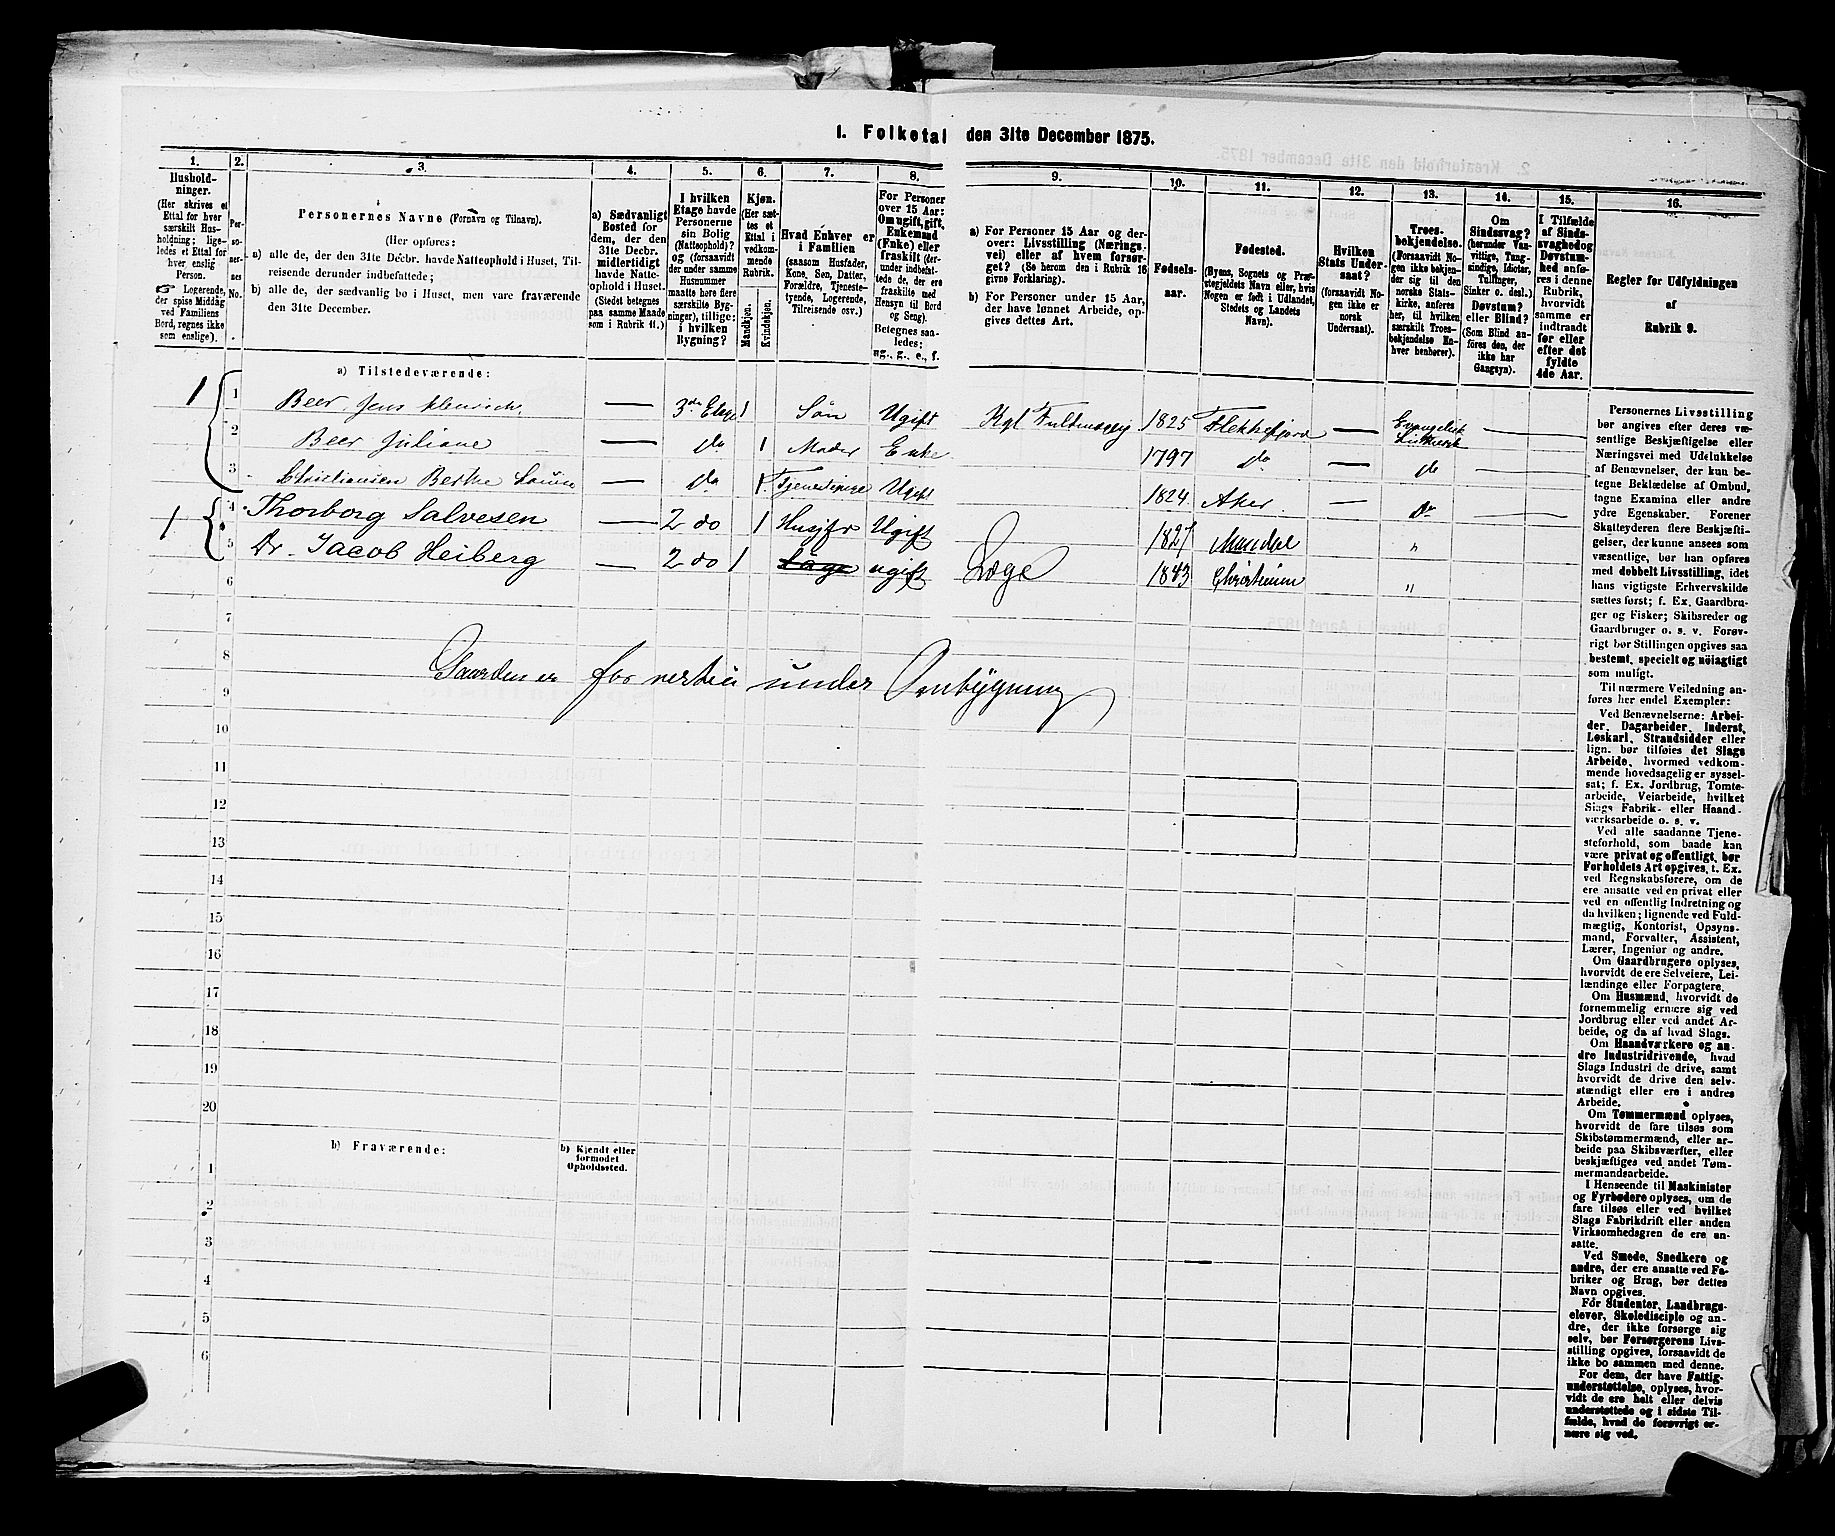 1. Folketal den 31te December 1875.
1. 2. 3. 4. 5. 6. 7. 8. 9. 10. 11. 12. 13. 14. 15. 16.
Hushold-
ninger.
(Her skrives et
Ettal for hver
særskilt Hus-
holdning; lige-
ledes et Ettal for
hver enslig
Person.
☞ Logerende,
der spise Middag
ved Familiens
Bord, regnes ikke
som enslige).
Per-
so-
ner-
nes
No.
Personernes Navne (Fornavn og Tilnavn).
(Her opføres:
a) alle de, der den 31te Decbr. havde Natteophold i Huset, Til-
reisende derunder indbefattede;
b) alle de, der sædvanlig bo i Huset, men vare fraværende
den 31te December.
a) Sædvanligt
Bosted for
dem, der den
31te Decbr.
midlertidigt
havde Natte-
ophold i Huset.
(Stedet betegnes
paa samme Maade
som i Rubrik 11.)
I hvilken
Etage havde
Personerne
sin Bolig
(Natteophold)?
og (forsaavidt
der under samme
Husnummer
maatte høre flere
særskilte Byg-
ninger), tillige:
i hvilken
Bygning?
Kjøn.
(Her sæt-
tes et
Ettal i
vedkom-
mende
Rubrik.
Mandkjøn.
Kvindekjøn.
Hvad Enhver er
i Familien
(saasom Husfader,
Kone, Søn, Datter,
Forældre, Tjeneste-
tyende, Logerende,
Tilreisende osv.)
For Personer
over 15 Aar:
Om ugift, gift,
Enkemand
(Enke) eller
fraskilt (der-
under indbefat-
tede de, der ere
fraskilte med
Hensyn til Bord
og Seng).
Betegnes saa-
ledes:
ug., g., e., f.
a) For Personer 15 Aar og der-
over: Livsstilling (Nærings-
vei) eller af hvem forsør-
get? (Se herom den i Rubrik 16
givne Forklaring).
b) For Personer under 15 Aar,
der have lønnet Arbeide, op-
gives dettes Art.
Fødsels-
aar.
Fødested.
(Byens, Sognets og Præ-
stegjeldets Navn eller, hvis
Nogen er født i Udlandet,
Stedets og Landets
Navn).
Hvilken
Stats Under-
saat?
(forsaavidt No-
gen ikke er
norsk
Undersaat).
Troes-
bekjendelse.
(Forsaavidt No-
gen ikke bekjen-
der sig til den
norske Stats-
kirke, anføres
her, til hvilken
særskilt Troes-
bekjendelse En-
hver henhører).
Om
Sindssvag?
(herunder Van-
vittige, Tung-
sindige, Idioter,
Tullinger,
Sinker o. desl.)
Døvstum?
eller Blind?
(Som Blind an-
føres den, der
ikke har
Gangsyn).
I Tilfælde
af Sinds-
svaghed og
Døvstum-
hed anfø-
res i denne
Rubrik,
hvorvidt
samme er
indtraadt
før eller
efter det
fyldte
4de Aar.
Regler for Udfyldningen
af
Rubrik 9.
a) Tilstedeværende:
1 1 Beer, Jens Henrich — 3de Etage 1 Søn Ugift Kgl Fuldmægtig 1825 Flekkefjord — Evangelisk Luthersk —
2 Beer Juliane — do 1 Moder Enke 1797 do — do —
3 Christiansen Berthe — do 1 Tjenestepige Ugift 1824 Aker — do —
1 4 Thorborg Salvesen — 2 do 1 Husjfr Ugift 1827 Mandal "
5 Dr. Jacob Heiberg — 2 do 1 Læge ugift Læge 1843 Christiania "
6
7
8
Gaarden er for resten under Ombygning
9
10
11
12
13
14
15
16
17
18
19
20
b) Fraværende:
b) Kjendt eller
formodet
Opholdssted.
1
2
3
4
5
6
Personernes Livsstilling
bør angives efter deres væ-
sentlige Beskjæftigelse eller
Næringsvei med Udelukkelse
af Benævnelser, der kun be-
tegne Beklædelse af Ombud,
tagne Examina eller andre
ydre Egenskaber. Forener
Skatteyderen flere Beskjæfti-
gelser, der kunne ansees som
væsentlige, bør han opføres
med dobbelt Livsstilling, idet
hans vigtigste Erhvervskilde
sættes først; f. Ex. Gaardbru-
ger og Fisker; Skibsreder og
Gaardbruger o. s. v. Forøv-
rigt bør Stillingen opgives saa
bestemt, specielt og nöiagtigt
som muligt.
Til nærmere Veiledning an-
føres her endel Exempler:
Ved Benævnelserne: Arbei-
der, Dagarbeider, Inderst,
Løskarl, Strandsidder eller
lign. bør tilføies det Slags
Arbeide, hvormed vedkom-
mende hovedsagelig er syssel-
sat; f. Ex. Jordbrug, Tomte-
arbeide, Veiarbeide, hvilket
Slags Fabrik- eller Haand-
værksarbeide o. s. v.
Ved alle saadanne Tjene-
steforhold, som baade kan
være privat og offentligt, bør
Forholdets Art opgives, t. Ex.
ved Regnskabsførere, om de
ere ansatte ved en privat eller
ved en offentlig Indretning og
da hvilken; lignende ved Fuld-
mægtig, Kontorist, Opsyns-
mand, Forvalter, Assistent,
Lærer, Ingeniør og andre.
Om Gaardbrugere oplyses,
hvorvidt de ere Selveiere, Lei-
lændinge eller Forpagtere.
Om Husmænd, hvorvidt de
fornemmelig ernære sig ved
Jordbrug eller ved andet Ar-
beide, og da af hvad Slags.
Om Haandværkere og an-
dre Industridrivende, hvad
Slags Industri de drive, samt
hvorvidt de drive den selv-
stændigt eller ere i andres
Arbeide.
Om Tømmermænd oplyses,
hvorvidt de fare tilsøs som
Skibstømmermænd, eller ar-
beide paa Skibsværfter, eller
beskjæftiges ved andet Tøm-
mermandsarbeide.
I Henseende til Maskinister
og Fyrbødere oplyses, om de
fare tilsøs eller ved hvilket
Slags Fabrikdrift eller anden
Virksomhedsgren de ere an-
satte.
Ved Smede, Snedkere og
andre, der ere ansatte ved Fa-
briker og Brug, bør dettes
Navn opgives.
For Studenter, Landbrugs-
elever, Skoledisciple og an-
dre, der ikke forsørge sig
selv, bør Forsørgerens Livs-
stilling opgives, forsaavidt de
ikke bo sammen med denne.
For dem, der have Fattig-
understøttelse, oplyses, hvor-
vidt de ere helt eller delvis
understøttede og i sidste Til-
fælde, hvad de forøvrigt er-
nære sig ved.